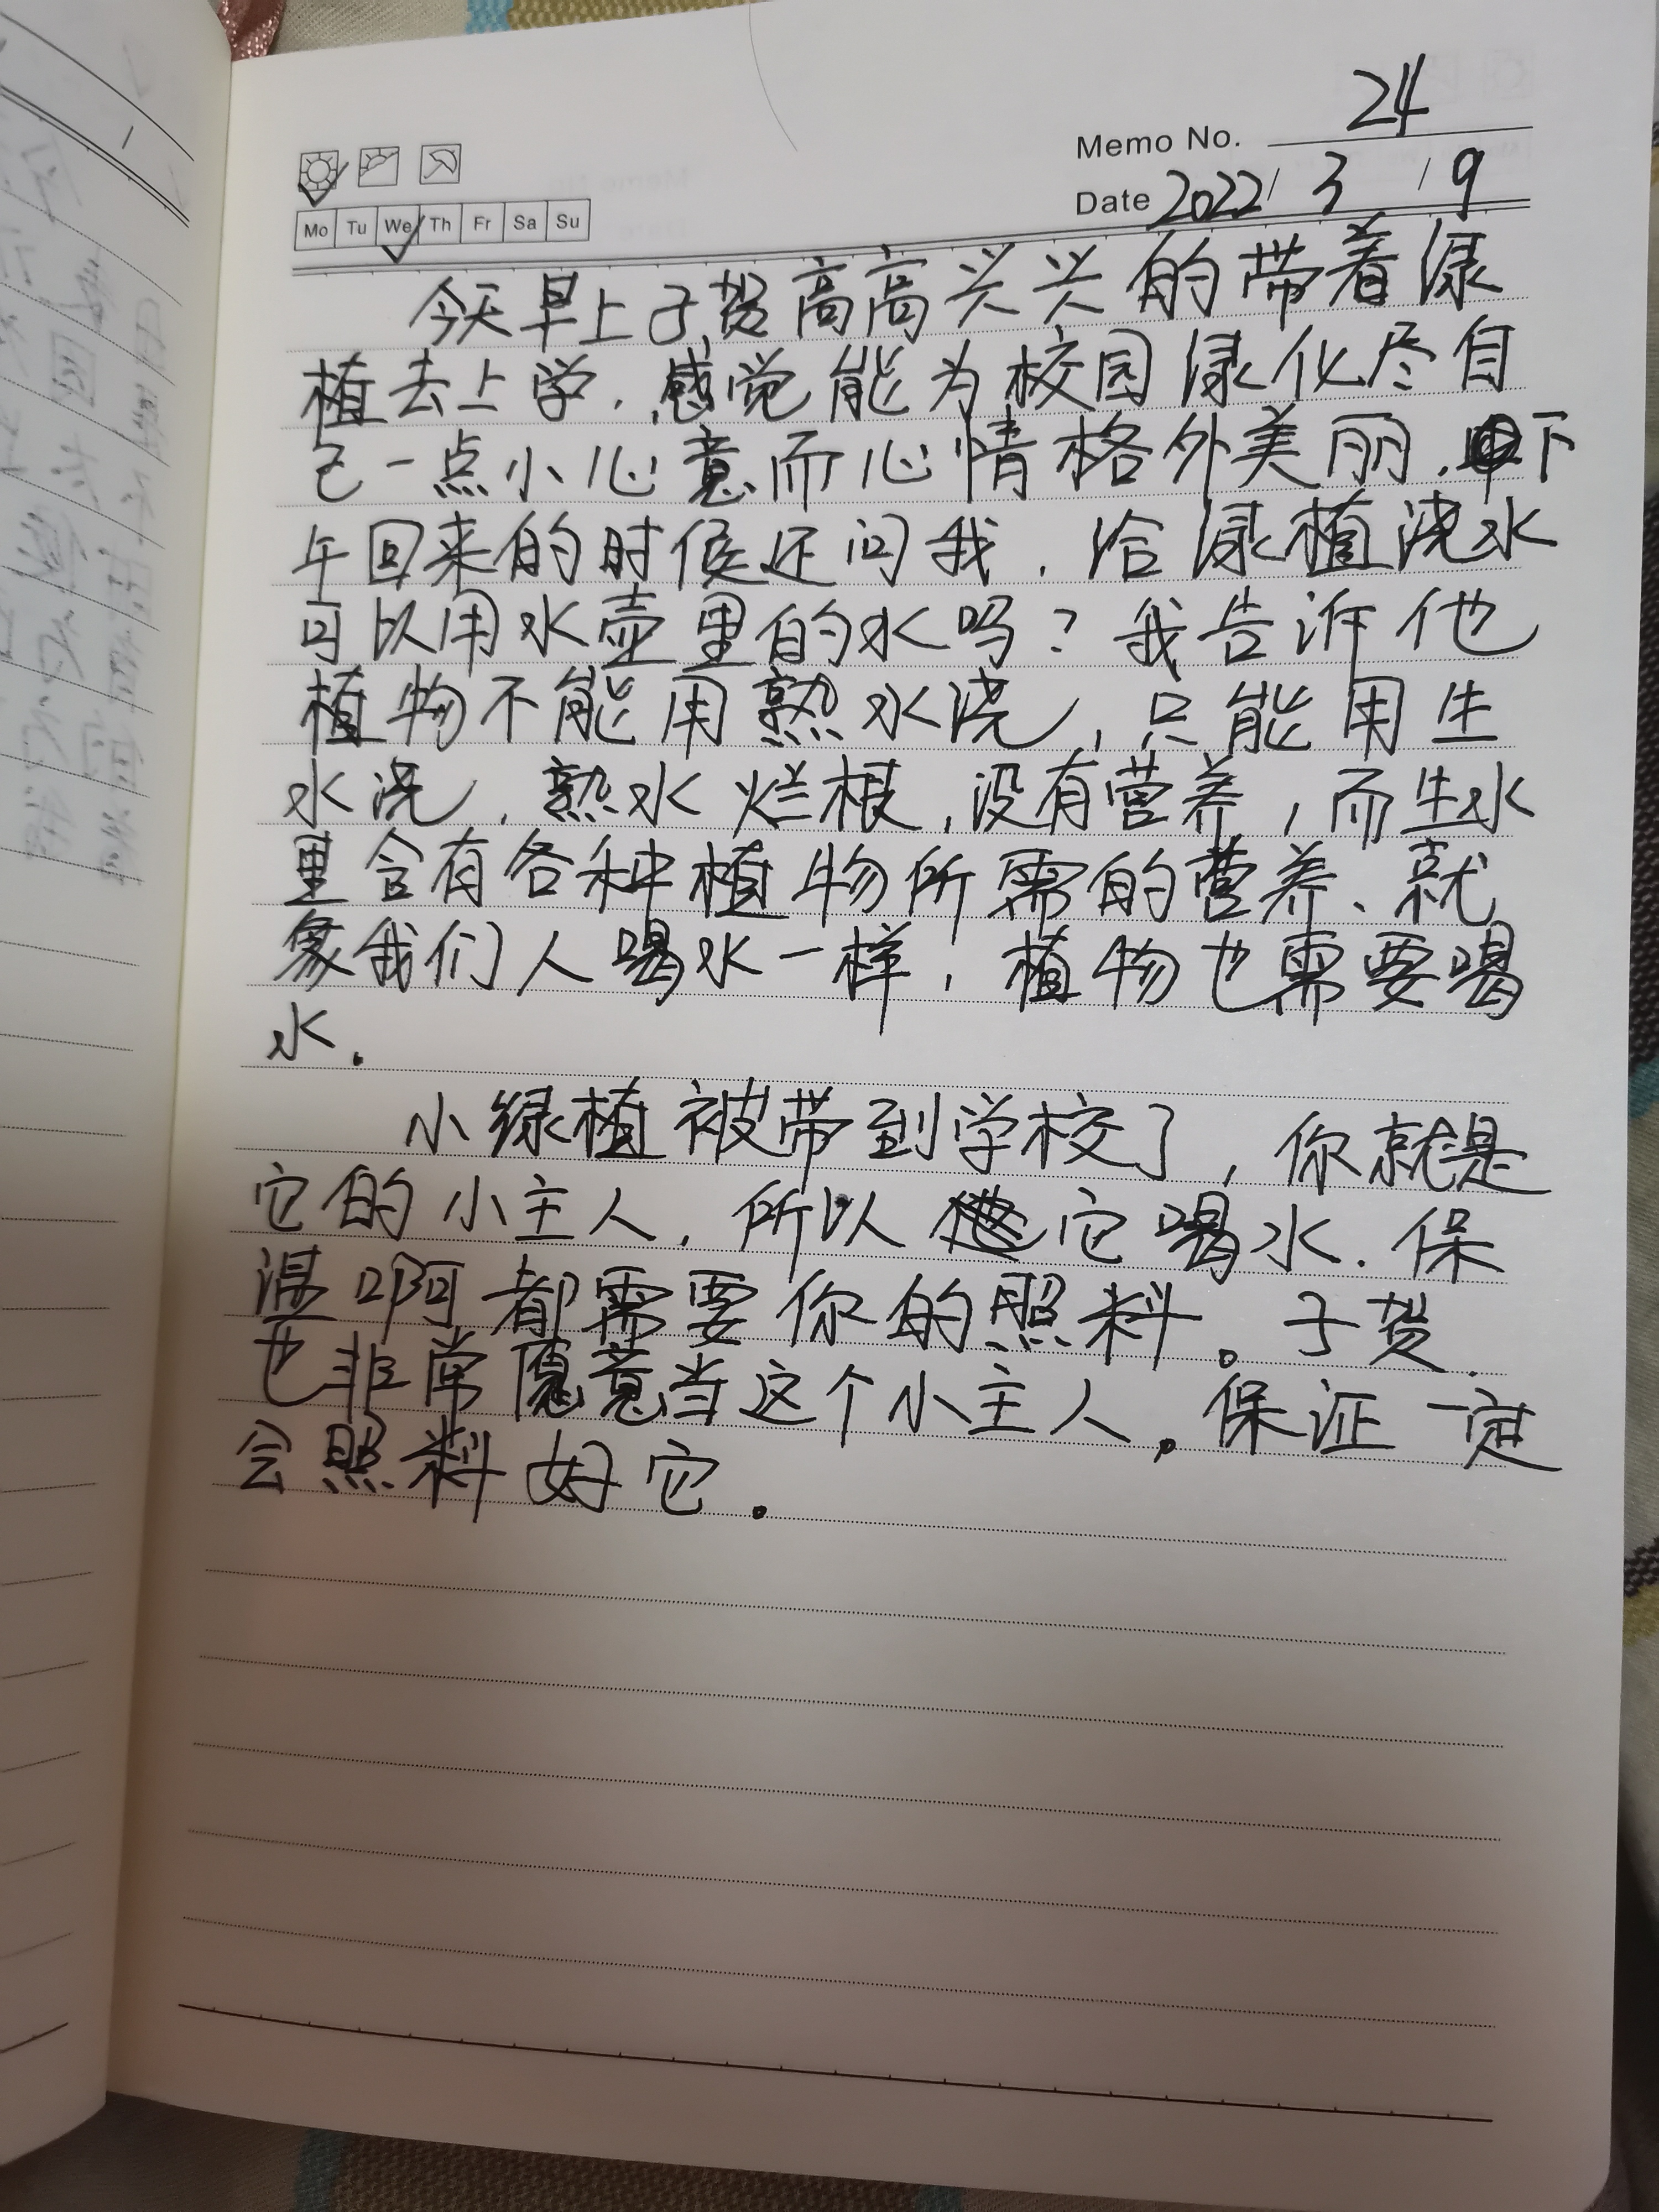 Memo No. 24
Mo Tu We Th Fr Sa Su
Date 2022/3/9
今天早上子贺高高兴兴的带着绿
植去上学,感觉能为校园绿化尽自
己一点小心意而心情格外美丽,下
午回来的时候还问我,给绿植浇水
可以用水壶里的水吗?我告诉他
植物不能用熟水浇,只能用生
水浇,熟水烂根,没有营养,而生水
里含有各种植物所需的营养、就
象我们人喝水一样,植物也需要喝
水.
小绿植被带到学校了,你就是
它的小主人,所以它喝水.保
温啊都需要你的照料。子贺
也非常愿意当这个小主人。保证一定
会照料好它.